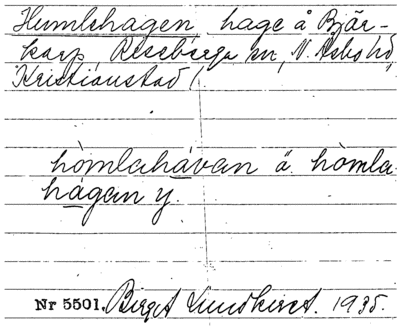 Humlehagen hage å Bjär-
karp, Riseberga sn, N. Åsbo hd,
Kristianstad l
hòmlahávan ä. hòmla-
hágan y.
Nr 5501. Birgit Lundkvist. 1935.